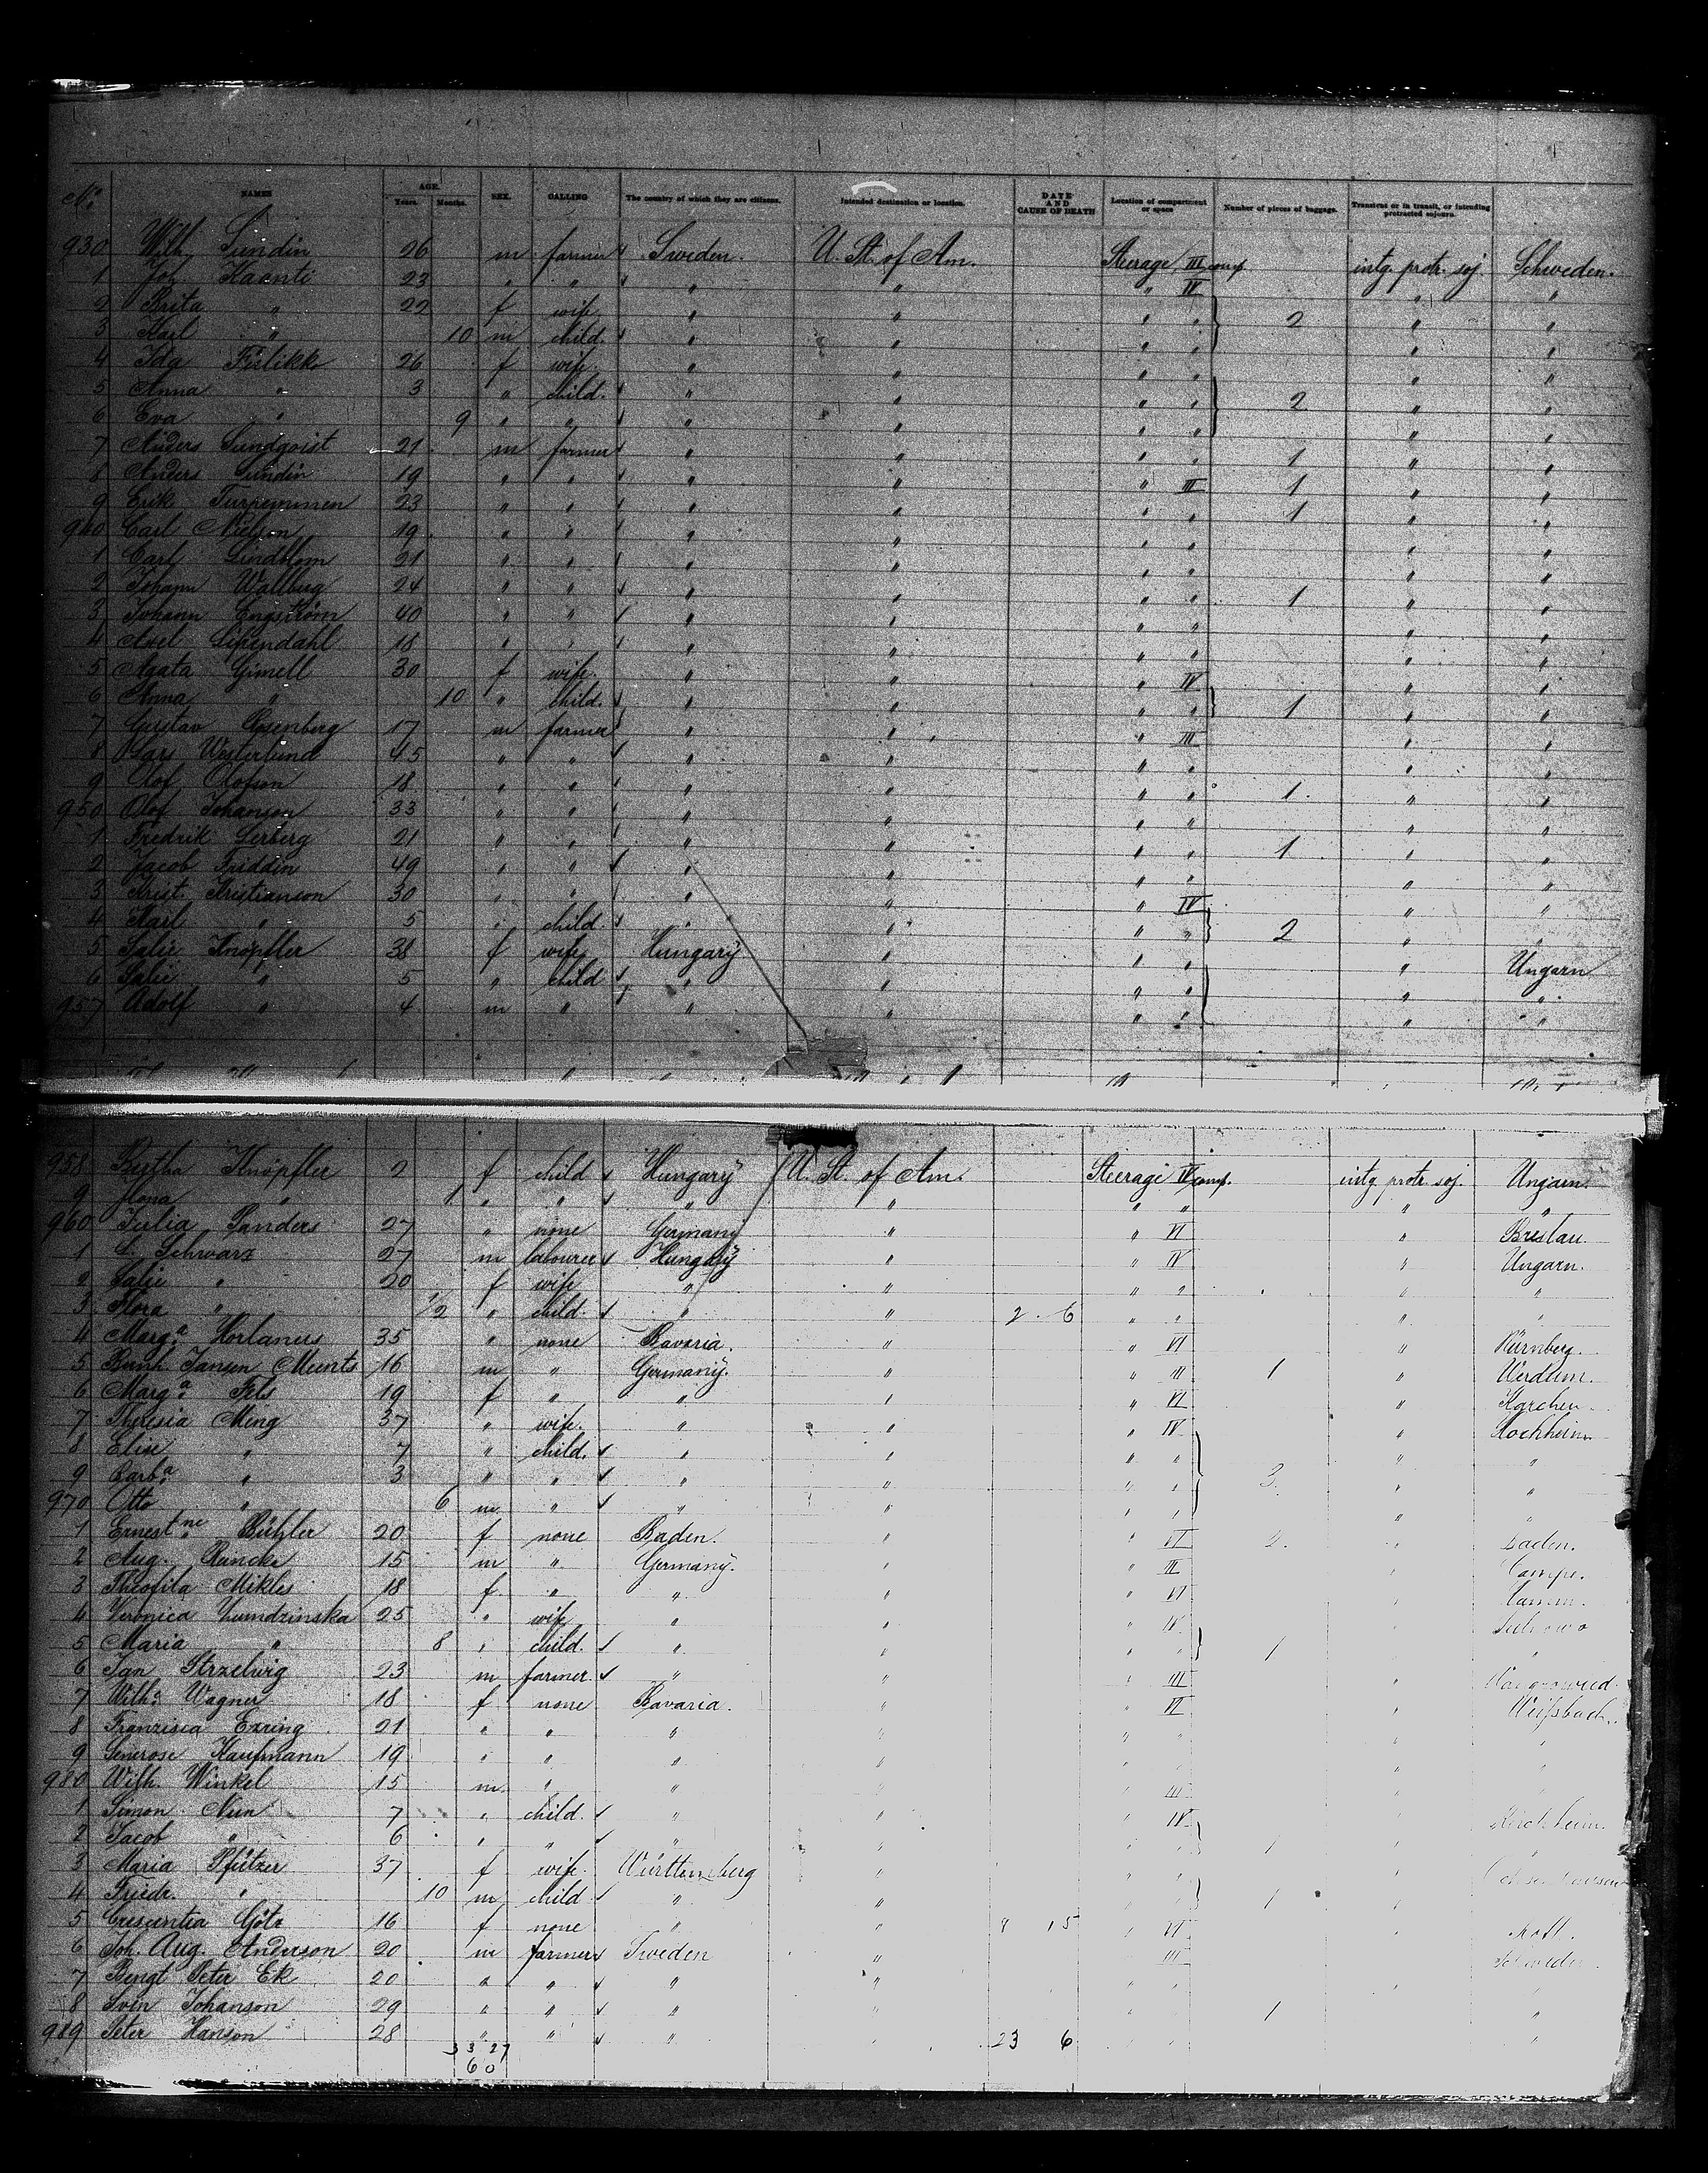 No. NAMES AGE. Years. Months. SEX. CALLING The country of which they are citizens. Intended destination or location. DATE AND CAUSE OF DEATH Location of compartment or space Number of pieces of baggage. Transient or in transit, or intending protracted sojourn.
930 Wilh. Sundin 26 m farmer Sweden. U. St. of Am. Steerage III comp. intg. protr. soj. Schweden.
1 Joh. 23 " " " " " IV " "
2 Brita " 22 f wife " " " " 2 " "
3 Karl " 10 m child. " " " " " "
4 Ida 26 f wife " " " " " "
5 Anna " 3 " child. " " " " 2 " "
6 Eva " 9 " " " " " " " "
7 Anders Sundqvist 21 m farmer " " " " 1 " "
8 Anders Sundin 19 " " " " " III 1 " "
9 Erik 23 " " " " " " 1 " "
940 Carl Nielson 19 " " " " " " " "
1 Carl Lindblom 21 " " " " " " " "
2 Johann Wallberg 24 " " " " " " 1 " "
3 Johann Engström 40 " " " " " " " "
4 Axel 18 " " " " " " " "
5 Agata Gimell 30 f wife. " " " IV " "
6 Anna " 10 " child. " " " " 1 " "
7 Gustav Rosenberg 17 m farmer " " " III " "
8 Lars Westerlund 45 " " " " " " " "
9 Olof Olofson 18 " " " " " " 1. " "
950 Olof Johanson 33 " " " " " " " "
1 Fredrik Serberg 21 " " " " " " 1 " "
2 Jacob Friddin 49 " " " " " " " "
3 Krist. Kristianson 30 " " " " " IV " "
4 Karl " 5 " child. " " " " 2 " "
5 Salie Knöpfler 38 f wife Hungary " " " " Ungarn
6 Salie " 5 " child " " " " " "
957 Adolf " 4 m " " " " " " "
958 Bertha Knöpfler 2 f child Hungary U. St. of Am. Steerage IV comp. intg. protr. soj. Ungarn.
9 Ilona " 1 " " " " " " " "
960 Julia Sanders 27 " none Germany " " VI " Breslau.
1 S. Schwarz 27 m labourer Hungary " " IV " Ungarn.
2 Salie " 20 f wife " " " " " "
3 Flora " 1/2 " child " " 2 6 " " " "
4 Marga. 35 " none Bavaria. " " VI " Nürnberg.
5 Jansen Meents 16 m " Germany. " " III 1 " Werdum.
6 Marga. Fels 19 f " " " " VI " Karchen
7 Theresia Meng 37 " wife. " " " IV " Hochheim
8 Elise " 7 " child. " " " " " "
9 Barba. " 3 " " " " " " 3. " "
970 Otto " 6 m " " " " " " "
1 Ernestne. Bühler 20 f none Baden. " " VI 2. " Baden.
2 Aug. Runcke 15 m " Germany. " " III " Campe.
3 Theofila Mikles 18 f. " " " " VI "
4 Veronica Zumdzinska 25 " wife " " " IV "
5 Maria " 8 " child. " " " " 1 " "
6 Jan Strzelwig 23 m farmer. " " " III "
7 Wilha. Wagner 18 f none Bavaria. " " VI " Weissbach.
8 Franzisca Exring 21 " " " " " " " "
9 Generose Kaufmann 19 " " " " " " " "
980 Wilh. Winkel 15 m. " " " " III " "
1 Simon Nun 7 " child. " " " IV " Kirchheim.
2 Jacob " 6 " " " " " " 1 " "
3 Maria Pfützer 37 f wife Württemberg " " " "
4 Friedr. " 10 m child " " " " 1 " "
5 Crescentia Götz 16 f none " " 9 15 " VI "
6 Joh. Aug. Anderson 20 m farmer Sweden " " III " Schweden.
7 Bengt Peter Ek 20 " " " " " " " "
8 Sven Johanson 29 " " " " " " 1 " "
989 Peter Hanson 28 " " " " 23 6 " " " "
33 27
60